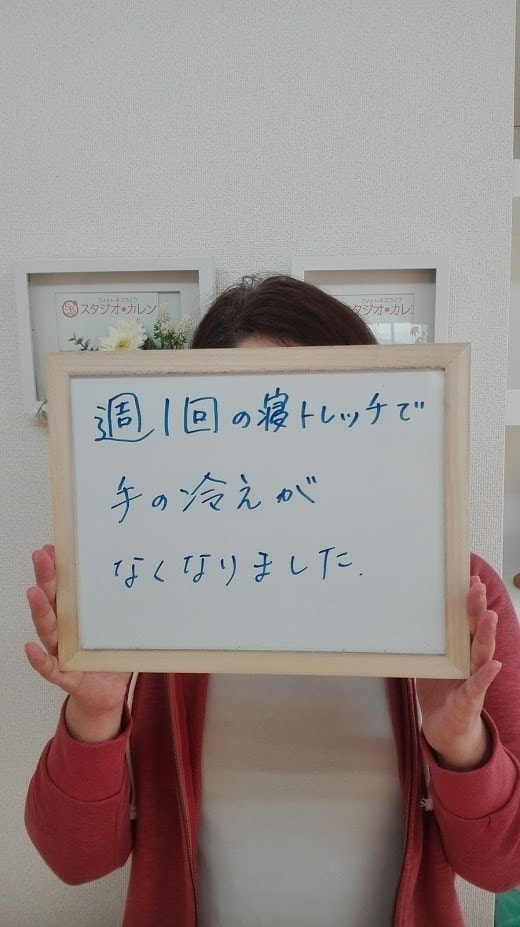 スタジオ・カレン
スタジオ・カレン
週1回の寝トレッチで
手の冷えが
なくなりました.